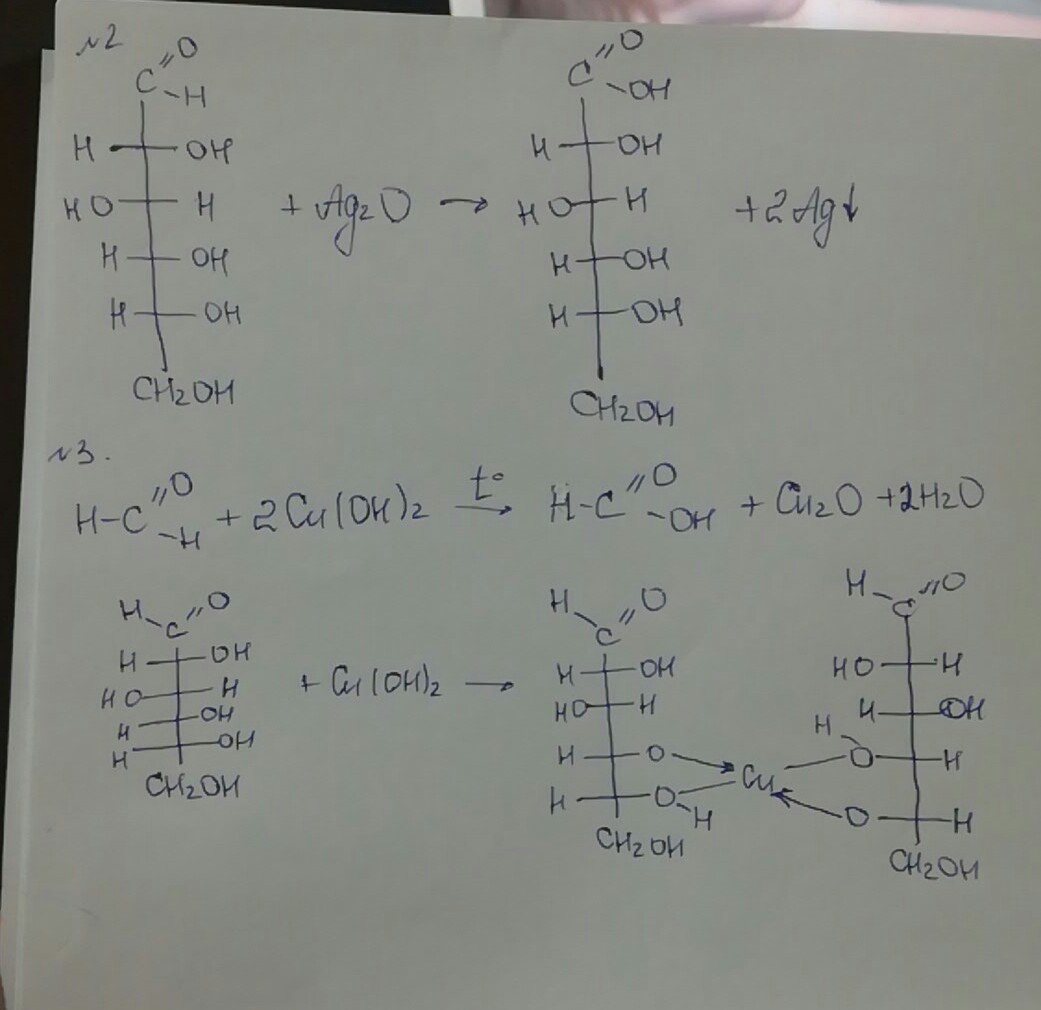 №2
C=O
-H
H OH
HO H
H OH
H OH
CH2OH
+ Ag2O →
C=O
-OH
H OH
HO H
H OH
H OH
CH2OH
+2Ag↓
№3.
H-C=O-H + 2Cu(OH)2 t° → H-C=O-OH + Cu2O + 2H2O
H-C=O
H OH
HO H
H OH
H OH
CH2OH
+ Cu(OH)2 →
H-C=O
H OH
HO H
H O
H O-H
CH2OH
Cu
H-C=O
HO H
H OH
H-O H
O H
CH2OH